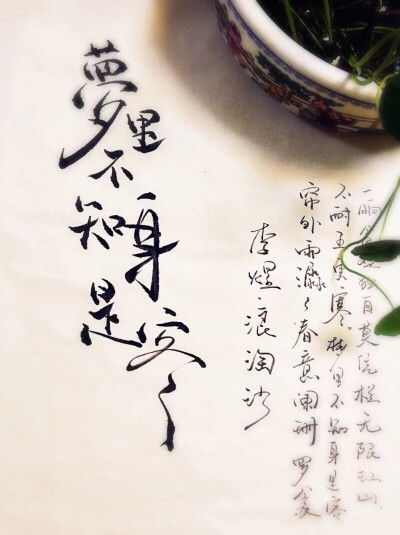 夢里不知身是客
李煜·浪淘沙
帘外雨潺々春意阑珊 罗衾
不耐五更寒 梦里不知身是客
一晌贪欢独自莫凭栏无限江山